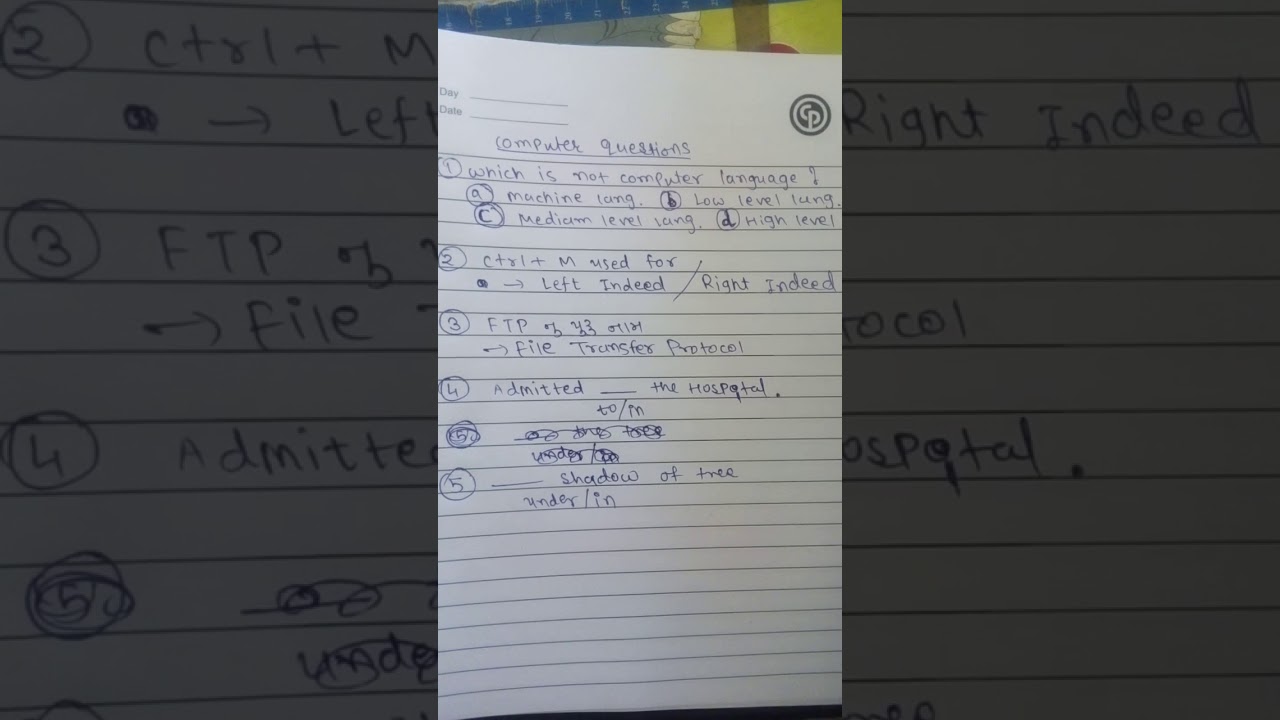 Day
Date
Computer questions
① which is not computer language ?
ⓐ machine lang. ⓑ Low level lang.
ⓒ Medium level lang. ⓓ High level
② Ctrl + M used for
→ Left Indeed / Right Indeed
③ FTP નું પૂરું નામ
→ File Transfer Protocol
④ Admitted ___ the Hospital.
to/in
⑤ ___ shadow of tree
under/in